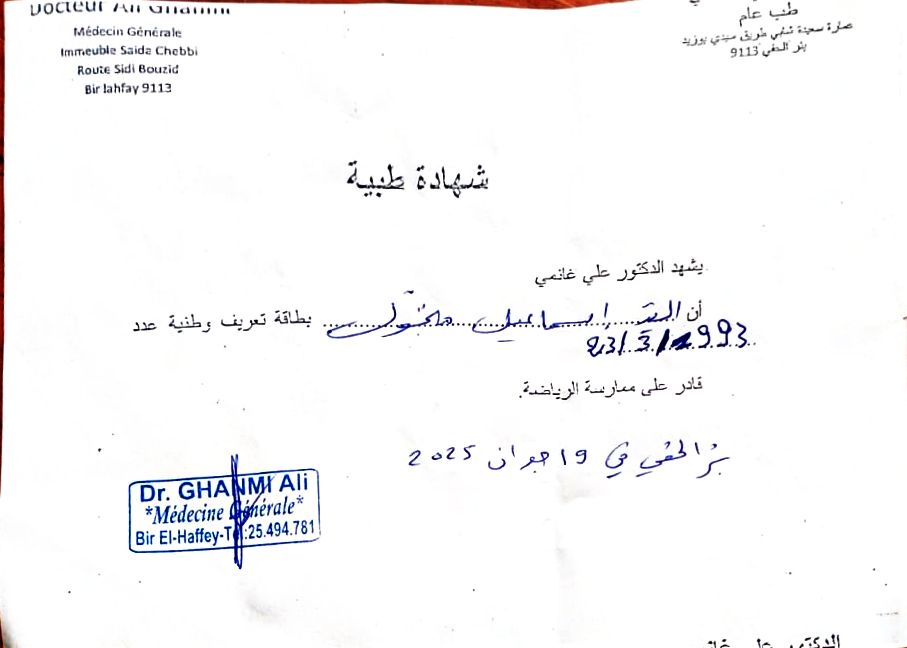 Docteur Ali Ghanmi
Médecin Générale
Immeuble Saida Chebbi
Route Sidi Bouzid
Bir lahfay 9113
طب عام
عمارة سعيدة شابي طريق سيدي بوزيد
بئر الحفي 9113
شهادة طبية
يشهد الدكتور علي غانمي
أن السيد اسماعيل بطاقة تعريف وطنية عدد
23/3/1993
قادر على ممارسة الرياضة.
بئر الحفي في 19 جوان 2025
Dr. GHANMI Ali
*Médecine Générale*
Bir El-Haffey-Tel:25.494.781
الدكتور علي